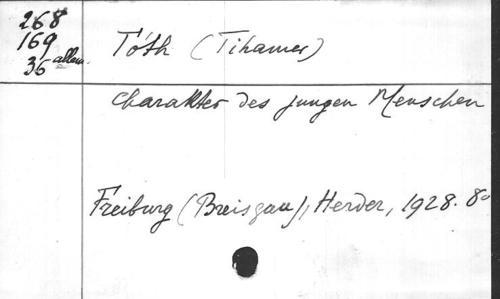 268
169
36 allem.
Tóth (Tihamer)
Charakter des jungen Menschen
Freiburg (Breisgau), Herder, 1928. 8o